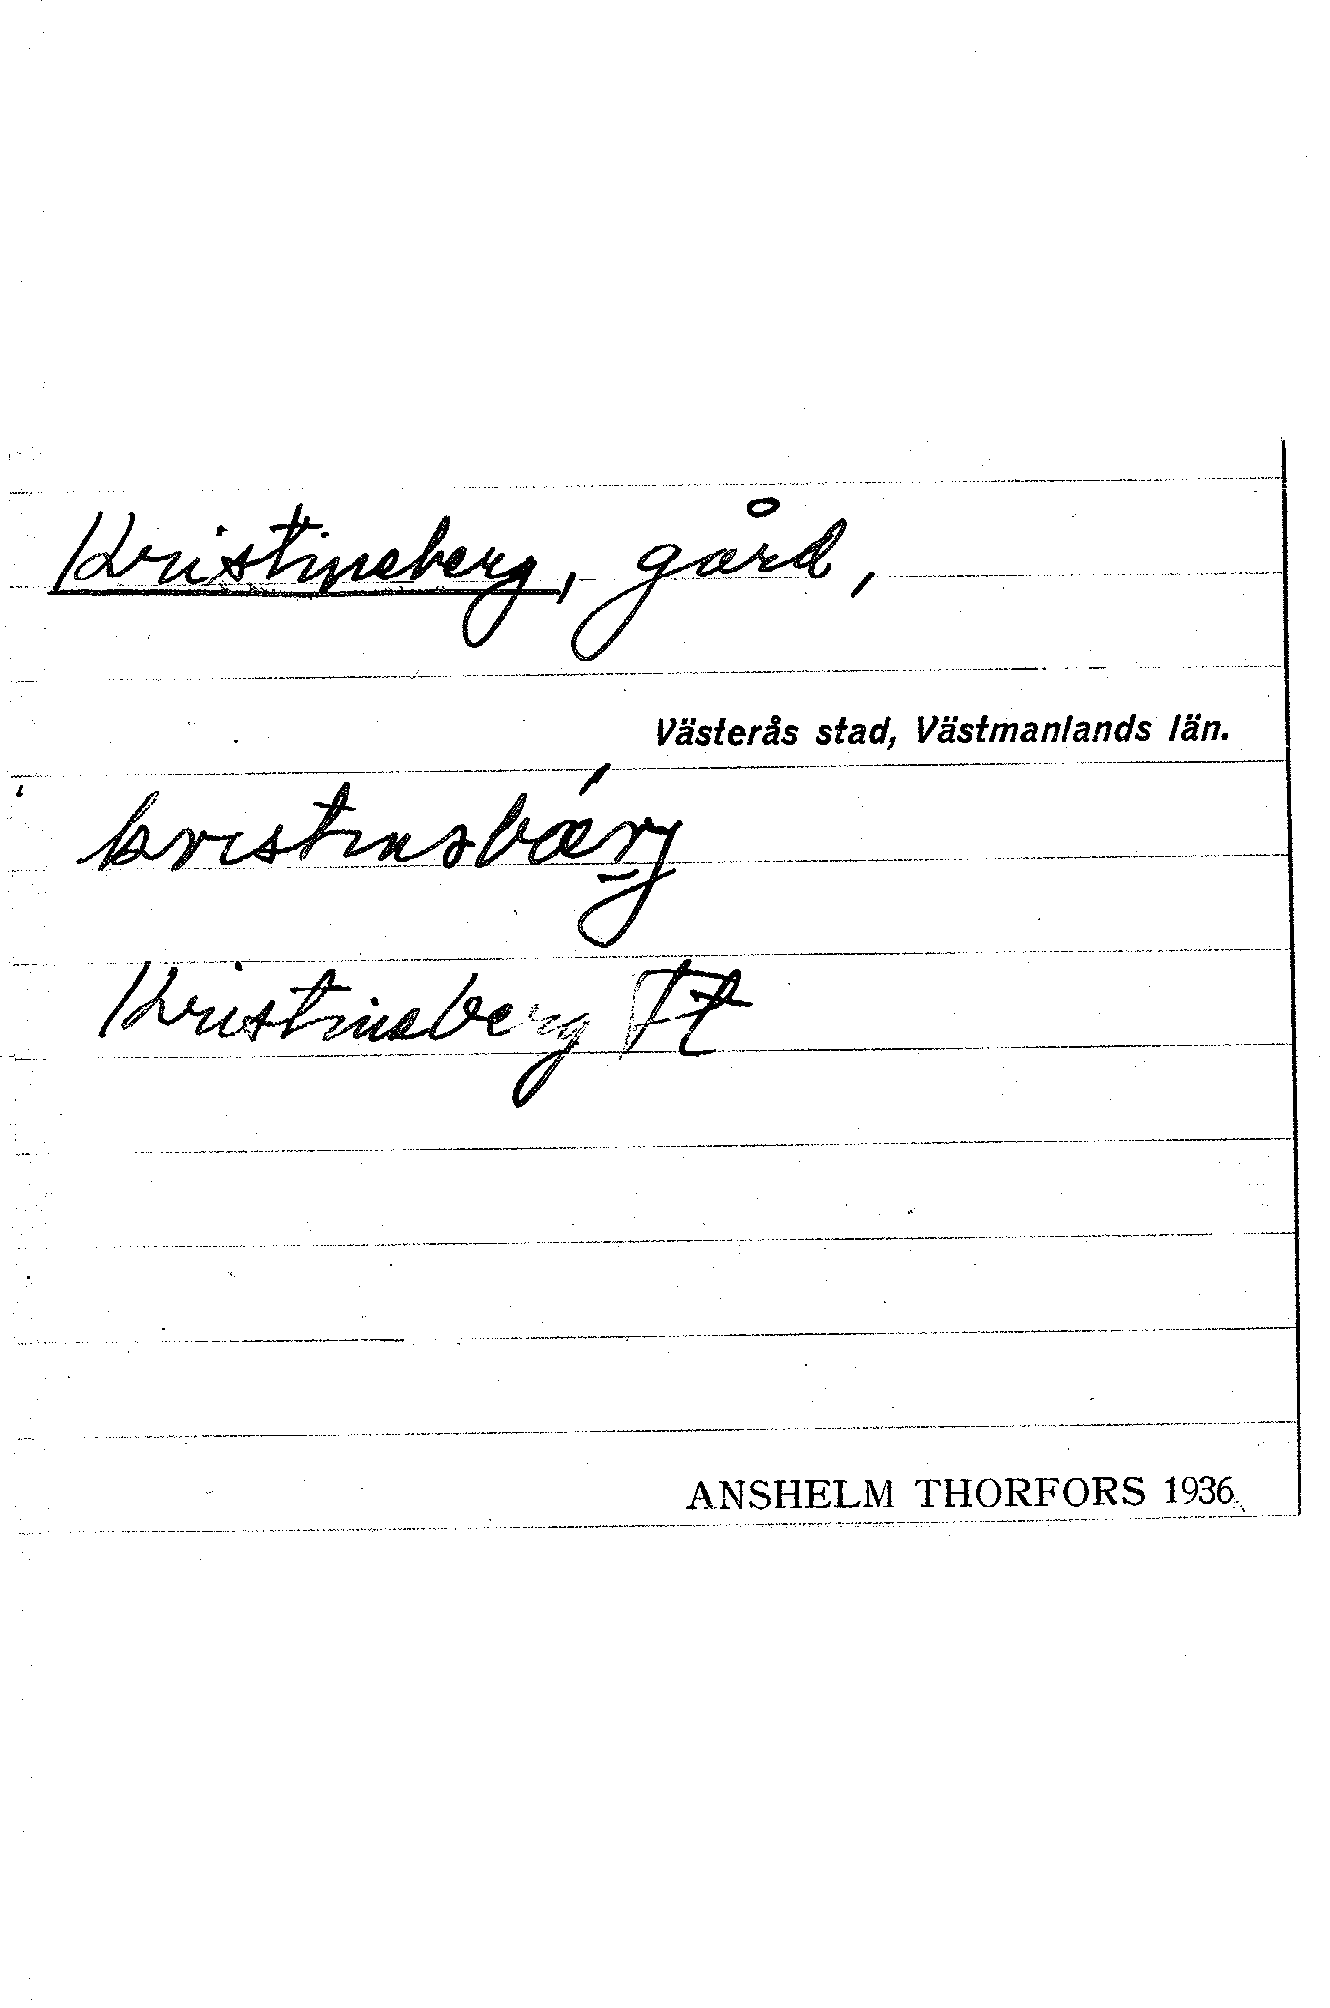 Kristineberg, gård,
Västerås stad, Västmanlands län.
kristinəbærj
Kristineberg
ANSHELM THORFORS 1936